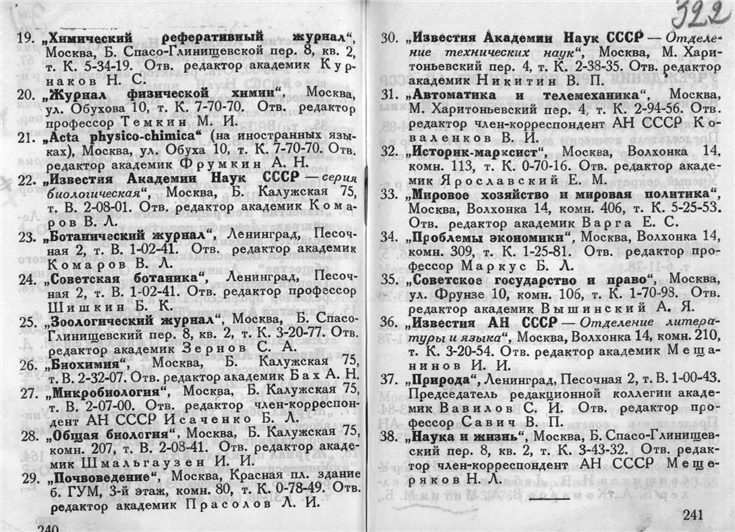 19. „Химический реферативный журнал“,
Москва, Б. Спасо-Глинищевской пер. 8, кв. 2,
т. К. 5-34-19. Отв. редактор академик Кур-
наков Н. С.
20. „Журнал физической химии“, Москва,
ул. Обухова 10, т. К. 7-70-70. Отв. редактор
профессор Темкин М. И.
21. „Acta physico-chimica“ (на иностранных язы-
ках), Москва, ул. Обуха 10, т. К. 7-70-70. Отв.
редактор академик Фрумкин А. Н.
22. „Известия Академии Наук СССР — серия
биологическая“, Москва, Б. Калужская 75,
т. В. 2-08-01. Отв. редактор академик Кома-
ров В. Л.
23. „Ботанический журнал“, Ленинград, Песоч-
ная 2, т. В. 1-02-41. Отв. редактор академик
Комаров В. Л.
24. „Советская ботаника“, Ленинград, Песоч-
ная 2, т. В. 1-02-41. Отв. редактор профессор
Шишкин Б. К.
25. „Зоологический журнал“, Москва, Б. Спасо-
Глинищевский пер. 8, кв. 2, т. К. 3-20-77. Отв.
редактор академик Зернов С. А.
26. „Биохимия“, Москва, Б. Калужская 75,
т. В. 2-32-07. Отв. редактор академик Бах А. Н.
27. „Микробиология“, Москва, Б. Калужская 75,
т. В. 2-07-00. Отв. редактор член-корреспон-
дент АН СССР Исаченко Б. Л.
28. „Общая биология“, Москва, Б. Калужская 75,
комн. 207, т. В. 2-08-41. Отв. редактор акаде-
мик Шмальгаузен И. И.
29. „Почвоведение“, Москва, Красная пл. здание
б. ГУМ, 3-й этаж, комн. 80, т. К. 0-78-49. Отв.
редактор академик Прасолов Л. И.
240
322
30. „Известия Академии Наук СССР — Отделе-
ние технических наук“, Москва, М. Хари-
тоньевский пер. 4, т. К. 2-38-35. Отв. редактор
академик Никитин В. П.
31. „Автоматика и телемеханика“, Москва,
М. Харитоньевский пер. 4, т. К. 2-94-56. Отв.
редактор член-корреспондент АН СССР Ко-
валенков В. И.
32. „Историк-марксист“, Москва, Волхонка 14,
комн. 113, т. К. 0-70-16. Отв. редактор акаде-
мик Ярославский Е. М.
33. „Мировое хозяйство и мировая политика“,
Москва, Волхонка 14, комн. 406, т. К. 5-25-53.
Отв. редактор академик Варга Е. С.
34. „Проблемы экономики“, Москва, Волхонка 14,
комн. 309, т. К. 1-25-81. Отв. редактор про-
фессор Маркус Б. Л.
35. „Советское государство и право“, Москва,
ул. Фрунзе 10, комн. 106, т. К. 1-70-98. Отв.
редактор академик Вышинский А. Я.
36. „Известия АН СССР — Отделение литера-
туры и языка“, Москва, Волхонка 14, комн. 210,
т. К. 3-20-54. Отв. редактор академик Меща-
нинов И. И.
37. „Природа“, Ленинград, Песочная 2, т. В. 1-00-43.
Председатель редакционной коллегии акаде-
мик Вавилов С. И. Отв. редактор про-
фессор Савич В. П.
38. „Наука и жизнь“, Москва, Б. Спасо-Глинищев-
ский пер. 8, кв. 2, т. К. 3-43-32. Отв. редак-
тор член-корреспондент АН СССР Меще-
ряков Н. Л.
241